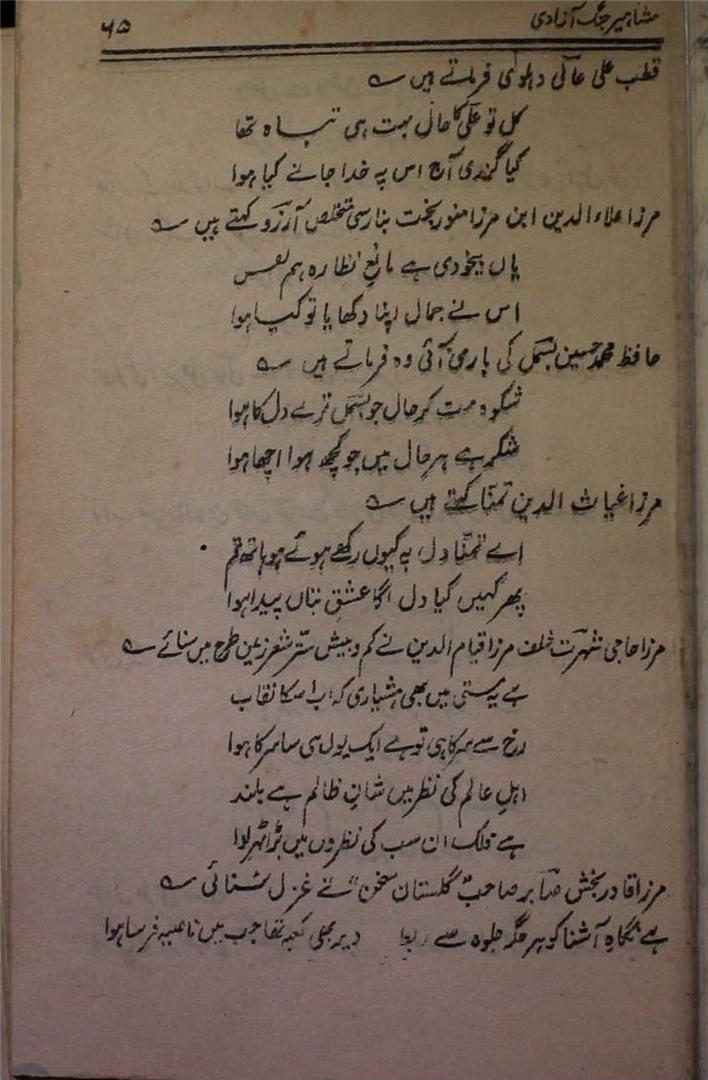 مشاہیر جنگ آزادی ۶۵
قطب علی عالی دہلوی فرماتے ہیں ؎
کل تو عالی کا حال بہت ہی تباہ تھا
کیا گزری آج اس پہ خدا جانے کیا ہوا
مرزا علاءالدین ابن مرزا منور بخت بنارسی متخلص آرزو کہتے ہیں ؎
یاں بیخودی ہے مانع نظارہ ہم نفس
اس نے جمال اپنا دکھایا تو کیا ہوا
حافظ محمد حسین بسمل کی باری آئی وہ فرماتے ہیں ؎
شکوہ مت کر حال جو بسمل ترے دل کا ہوا
شکر ہے ہر حال میں جو کچھ ہوا اچھا ہوا
مرزا غیاث الدین تمنا کہتے ہیں ؎
اے تمنا دل پہ کیوں رکھے ہوئے ہو ہاتھ تم
پھر کہیں کیا دل لگا عشق بتاں پیدا ہوا
مرزا حاجی شہرت خلف مرزا قیام الدین نے کم و بیش ستر شعر زمین طرح میں سنائے ؎
ہے یہ مستی میں بھی ہشیاری کہ اس کا نقاب
رخ سے سرکا ہی تو ہے ایک یوں ہی سا سرکا ہوا
اہل عالم کی نظر میں شان ظالم ہے بلند
ہے فلک ان سب کی نظروں میں بڑا ٹھہرا ہوا
مرزا قادر بخش صابر صاحب "گلستان سخن" نے غزل سنائی ؎
ہے نگاہ آشنا کو ہر جگہ جلوہ سے ربط دیر بھی کعبہ تھا جب میں ناصیہ فرسا ہوا